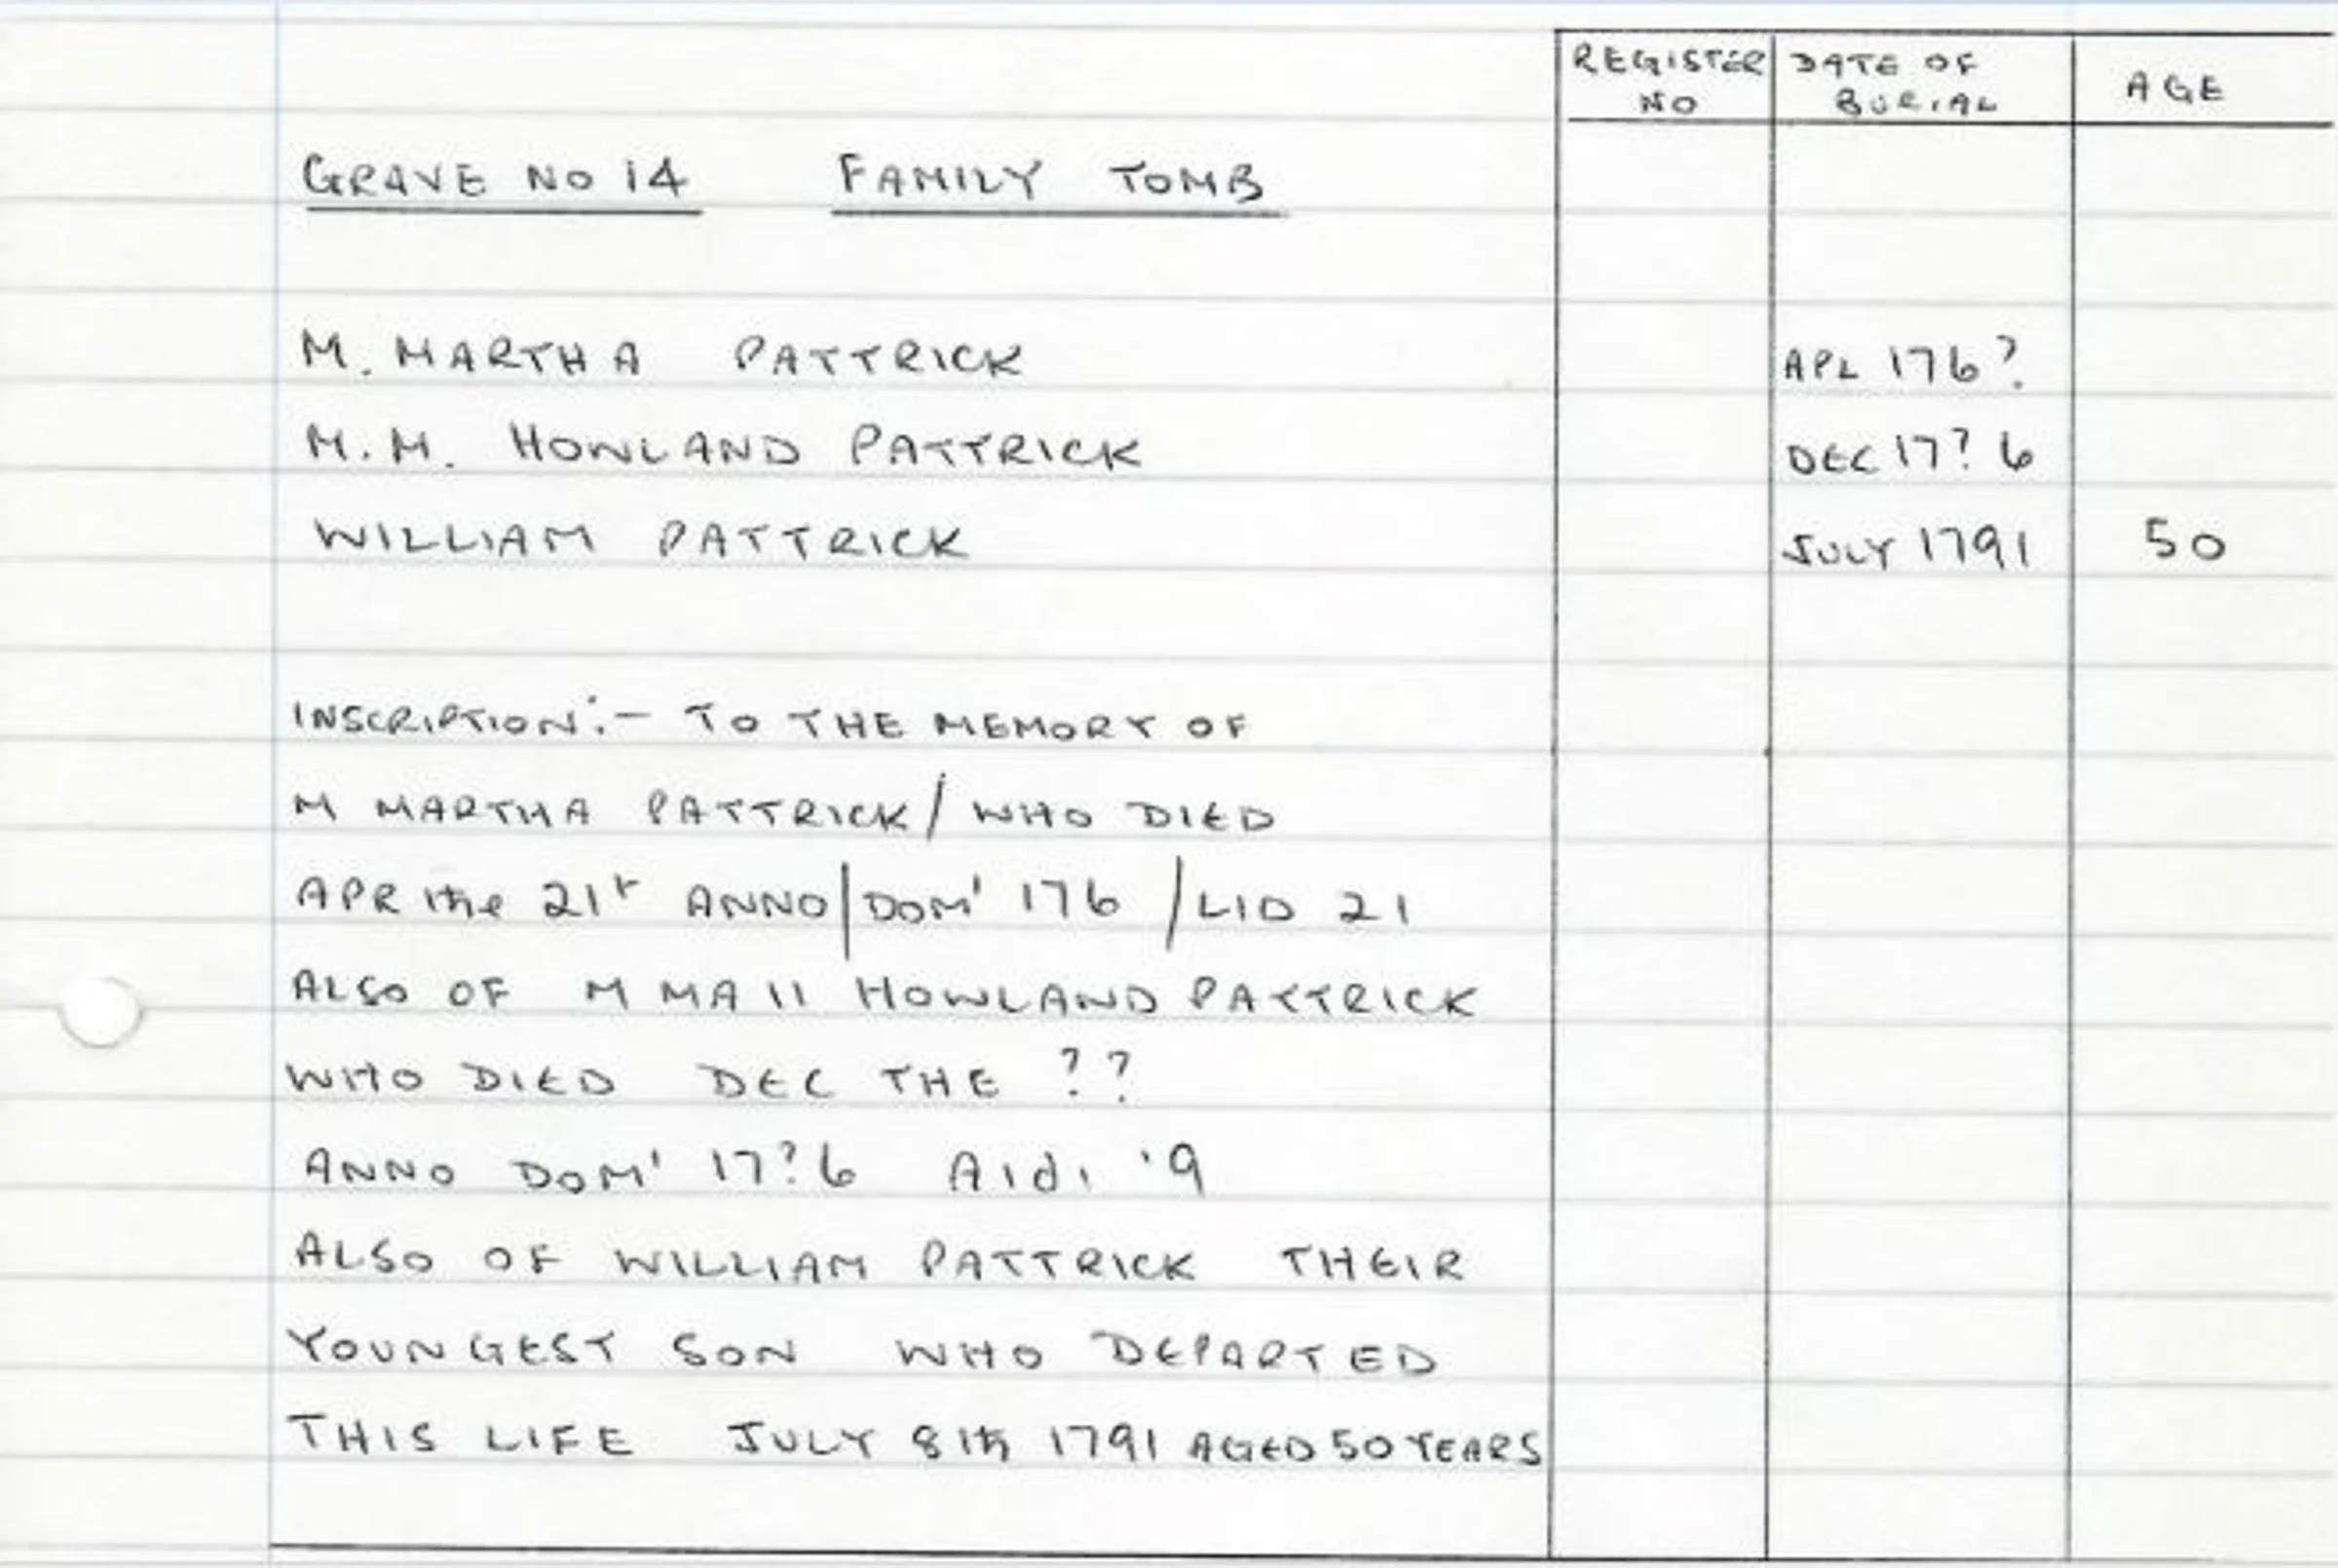 REGISTER NO DATE OF BURIAL AGE
GRAVE NO 14 FAMILY TOMB
M. MARTHA PATTRICK APL 176?
M.M. HOWLAND PATTRICK DEC 17?6
WILLIAM PATTRICK JULY 1791 50
INSCRIPTION:- TO THE MEMORY OF
M MARTHA PATTRICK/ WHO DIED
APR the 21t ANNO|DOM' 176 /LID 21
ALSO OF M MA11 HOWLAND PATTRICK
WHO DIED DEC THE ??
ANNO DOM' 17?6 Aidi '9
ALSO OF WILLIAM PATTRICK THEIR
YOUNGEST SON WHO DEPARTED
THIS LIFE JULY 8th 1791 AGED 50 YEARS